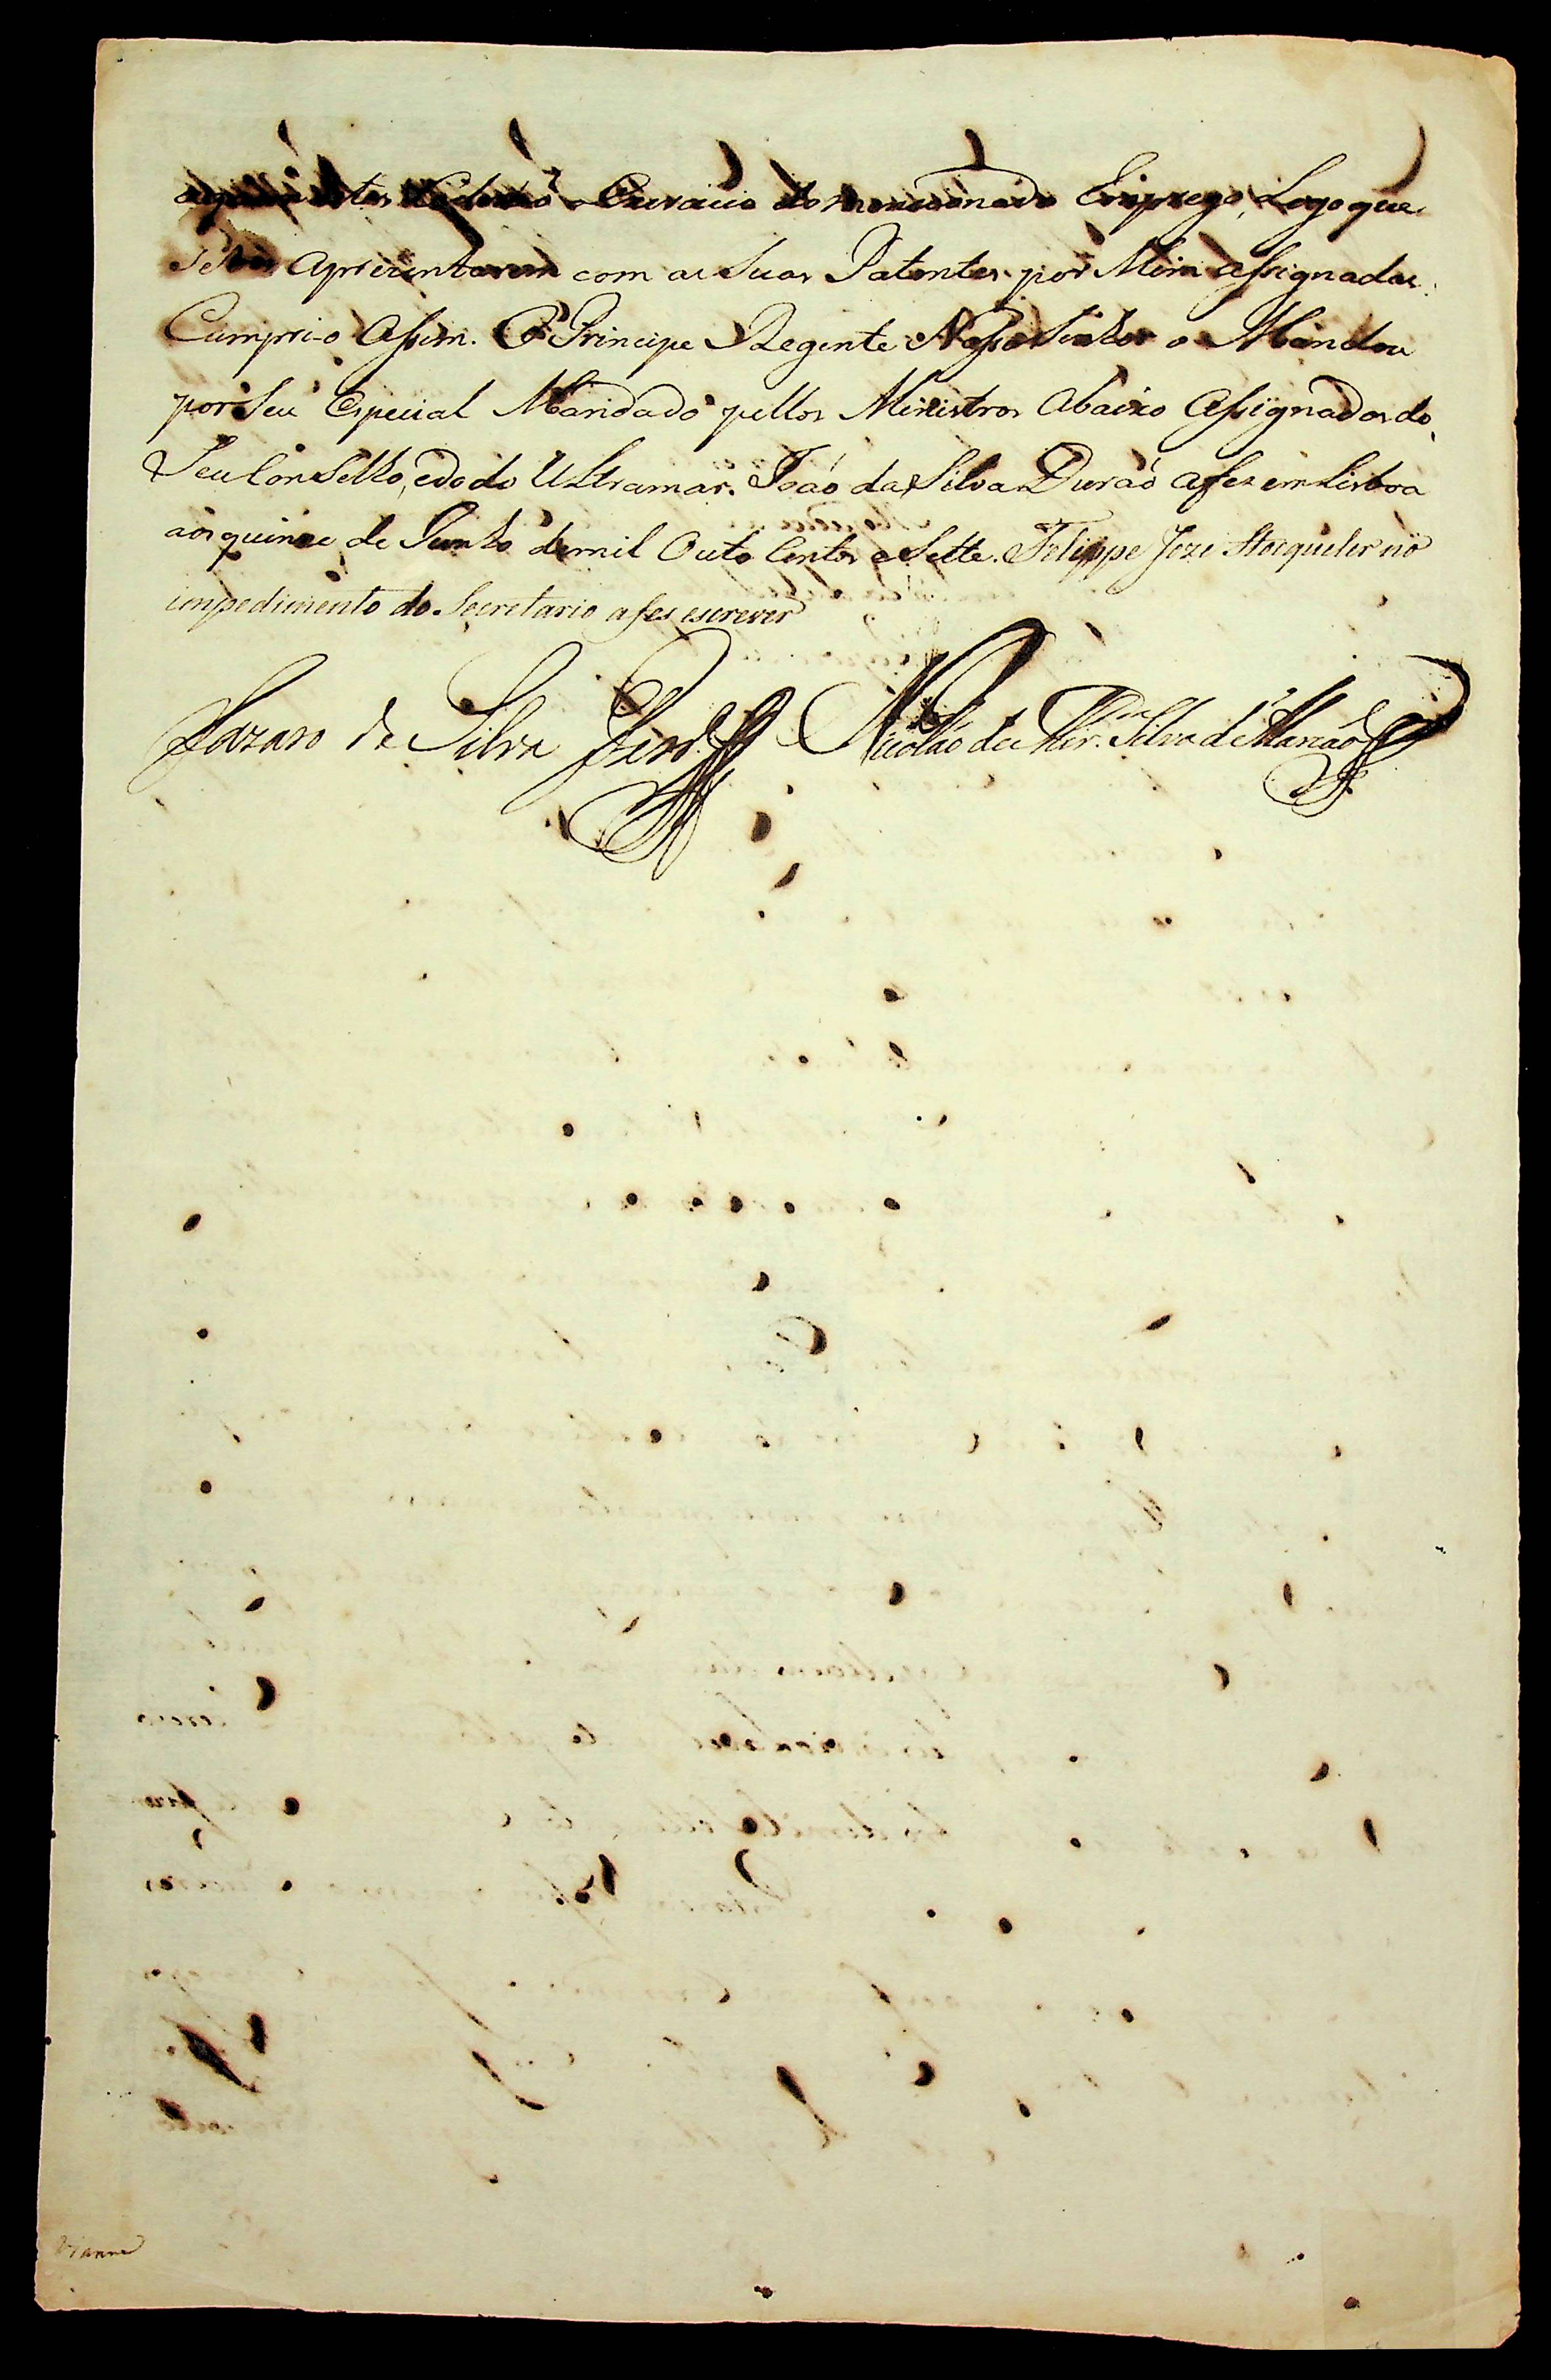 estes o Exercicio do mencionado Emprego, Logo que
se lhes Aprezentarem com as Suas Patentes por Mim assignadas.
Cumpri-o Assim. O Principe Regente Nosso Senhor o Mandou
por Seu Especial Mandado pellos Ministros Abaixo Assignados do
Seu Conselho, e do do Ultramar. João da Silva Durão a fes em Lisboa
aos quinze de Junho de mil Outo Centos e Sette. Filippe Joze Stocqueler no
impedimento do Secretario a fes escrever
Lazaro da Silva Ferr.ª Nicoláo de Mir.da Silva d'Alarcão
Vianna